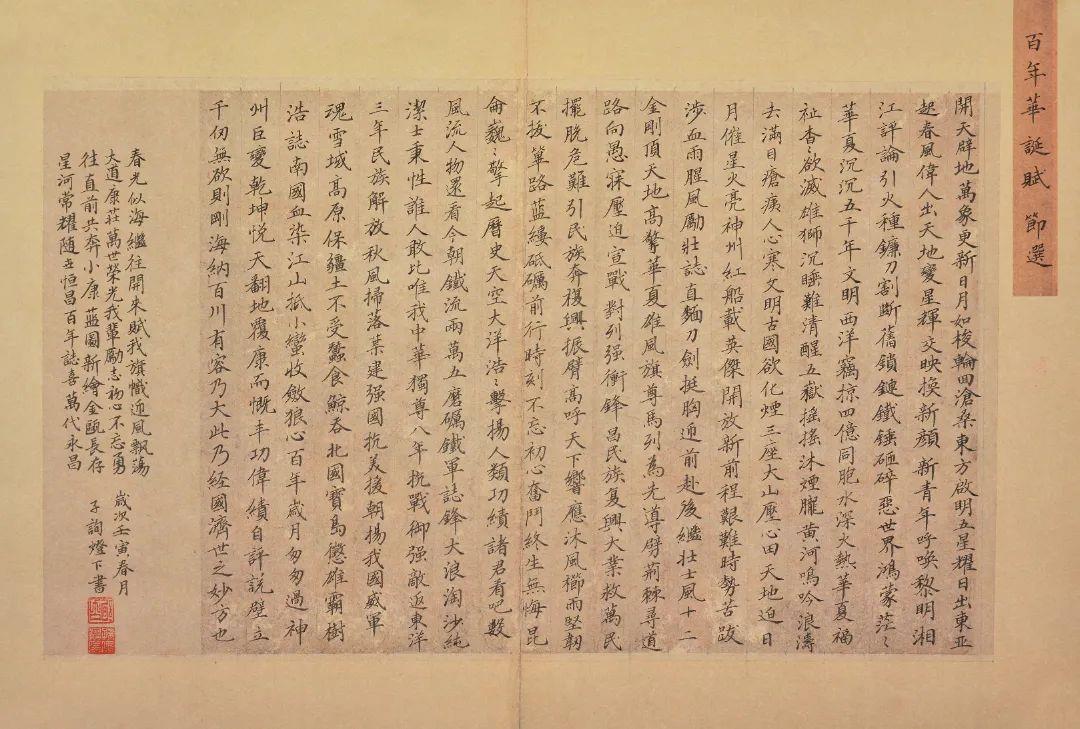 百年華誕賦 節選
開天辟地萬象更新日月如梭輪回滄桑東方啟明五星耀日出東亚
起春風偉人出天地變星輝交映換新顏新青年呼喚黎明湘
江評論引火種鐮刀割斷舊鎖鏈鐵錘砸碎惡世界鴻蒙茫〻
華夏沉沉五千年文明西洋竊掠四億同胞水深火熱華夏福
祉杳〻欲滅雄獅沉睡難清醒五嶽搖搖沐煙朧黃河嗚吟浪濤
去滿目瘡痍人心寒文明古國欲化煙三座大山壓心田天地迫日
月催星火亮神州紅船載英傑開放新前程艱難時勢苦跋
涉血雨腥風勵壯誌直麵刀劍挺胸迎前赴後繼壯士風十二
金剛頂天地高擎華夏雄風旗尊馬列為先導劈荊棘尋道
路向愚寐壓迫宣戰對列强衝鋒昌民族复興大業救萬民
擺脫危難引民族奔複興振臂高呼天下響應沐風櫛雨堅韌
不拔篳路藍縷砥礪前行時刻不忘初心奮鬥終生無悔昆
侖巍〻擎起曆史天空大洋浩〻擊揚人類功績諸君看吧數
風流人物還看今朝鐵流兩萬五磨礪鐵軍誌鋒大浪淘沙純
潔士秉性誰人敢比唯我中華獨尊八年抗戰御强敵返東洋
三年民族解放秋風掃落葉建强國抗美援朝揚我國威軍
魂雪域高原保疆土不受蠶食鯨吞北國寶島懲雄霸樹
浩誌南國血染江山抵小蠻收斂狼心百年歲月匆匆過神
州巨變乾坤悅天翻地覆康而慨丰功偉績自評説壁立
千仞無欲則剛海納百川有容乃大此乃经國濟世之妙方也
春光似海繼往開來賦我旗幟迎風飄蕩
大道康莊萬世榮光我輩勵志初心不忘勇
往直前共奔小康藍圖新繪金甌長存
星河常耀随立恒昌百年誌喜萬代永昌
歲次壬寅春月
子詢燈下書